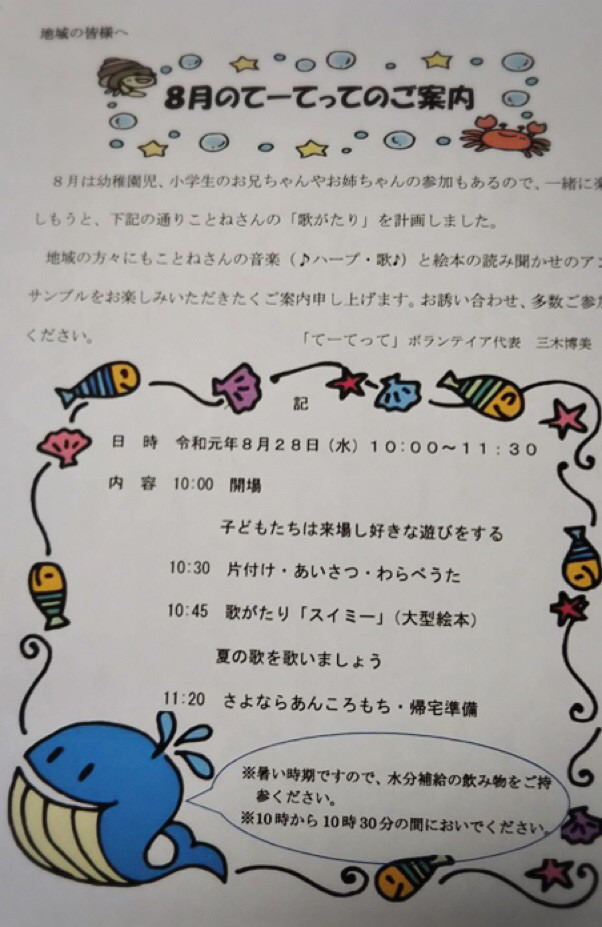 地域の皆様へ
8月のてーてってのご案内
８月は幼稚園児、小学生のお兄ちゃんやお姉ちゃんの参加もあるので、一緒に楽
しもうと、下記の通りことねさんの「歌がたり」を計画しました。
地域の方々にもことねさんの音楽（♪ハープ・歌♪）と絵本の読み聞かせのアン
サンブルをお楽しみいただきたくご案内申し上げます。お誘い合わせ、多数ご参加
ください。 「てーてって」ボランテイア代表 三木博美
記
日 時 令和元年８月２８日（水）１０：００～１１：３０
内 容 10:00 開場
子どもたちは来場し好きな遊びをする
10:30 片付け・あいさつ・わらべうた
10:45 歌がたり「スイミー」（大型絵本）
夏の歌を歌いましょう
11:20 さよならあんころもち・帰宅準備
※暑い時期ですので、水分補給の飲み物をご持
参ください。
※10時から10時30分の間においでください。